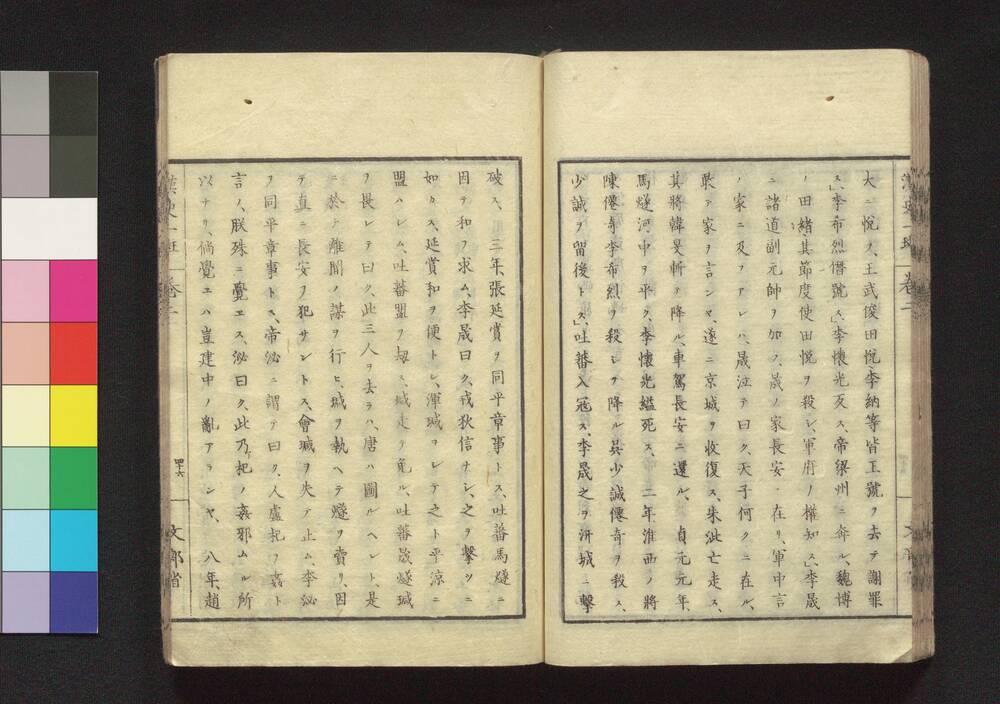 大ニ悦フ、王武俊田悅李納等皆王號ヲ去テ謝罪
ス、李希烈僭號ス、李懷光反ス、帝梁州ニ奔ル、魏博
ノ田緒其節度使田悅ヲ殺シ、軍府ノ權知ス、李晟
ニ諸道副元帥ヲ加フ、晟ノ家長安ニ在リ、軍中言
ノ家ニ及フアレハ、晟泣テ曰ク、天子何クニ在ル、
敢テ家ヲ言ンヤ、遂ニ京城ヲ收復ス、朱泚亡走ス、
其將韓旻斬テ降ル、車駕長安ニ還ル、 貞元元年、
馬燧河中ヲ平ク、李懷光縊死ス、 二年淮西ノ將
陳僊奇李希烈ヲ殺シテ降ル、吳少誠僊奇ヲ殺ス、
少誠ヲ留後トス、吐蕃入寇ス、李晟之ヲ汧城ニ擊
破ス、 三年張延賞ヲ同平章事トス、吐蕃馬燧ニ
因テ和ヲ求ム、李晟曰ク、戎狄信ナシ、之ヲ擊ツニ
如カス、延賞和ヲ便トシ、渾瑊ヲシテ之ト平涼ニ
盟ハシム、吐蕃盟ヲ劫ス、瑊走テ免ル、吐蕃晟燧瑊
ヲ畏レテ曰ク、此三人ヲ去ラハ、唐ハ圖ルヘシト、是
ニ於テ離間ノ謀ヲ行ヒ、瑊ヲ執ヘテ燧ヲ賣リ、因
テ直ニ長安ヲ犯サントス、會瑊ヲ失テ止ム、李泌
ヲ同平章事トス、帝泌ニ謂テ曰ク、人盧杞ヲ姦ト
言ノ、朕殊ニ覺エス、泌曰ク、此乃杞ノ姦邪ムル所
以ナリ、倘覺エハ豈建中ノ亂アランヤ、 八年趙
漢史一班 卷二
四十六
文部省